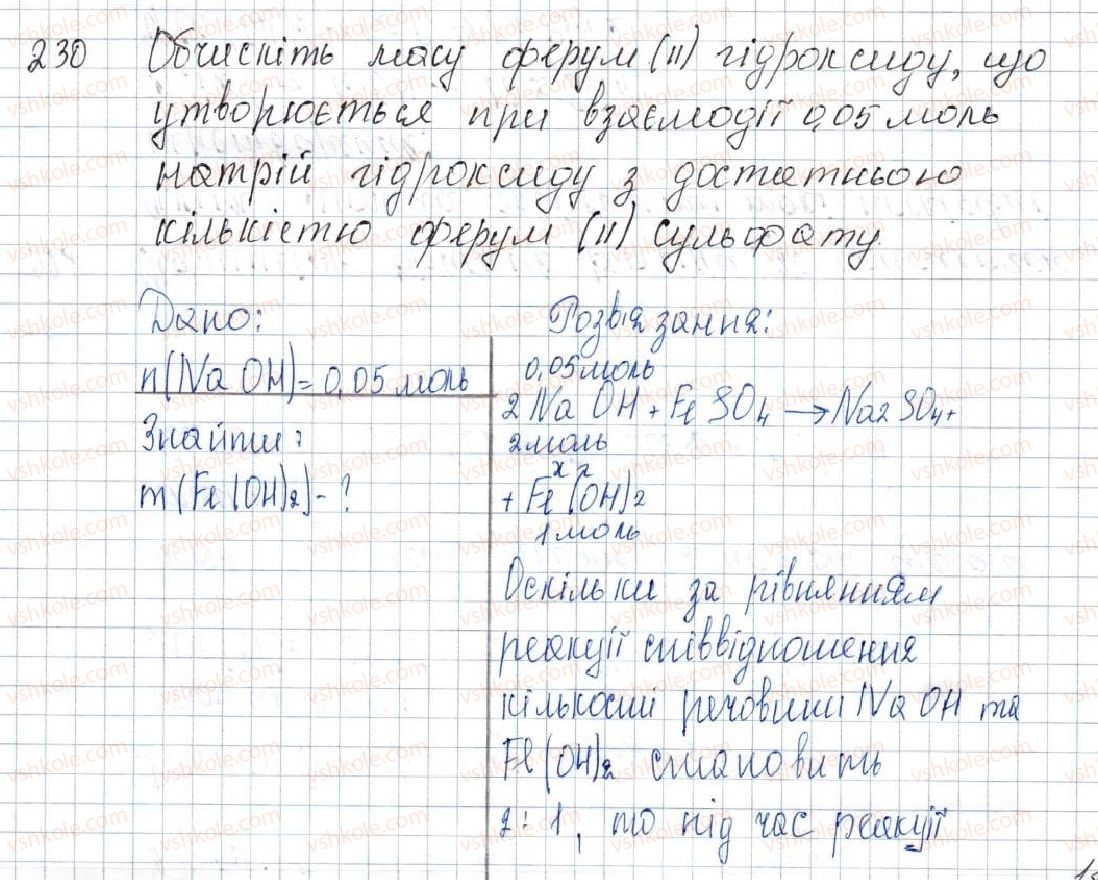 230 Обчисліть масу ферум (II) гідроксиду, що
утворюється при взаємодії 0,05 моль
натрій гідроксиду з достатньою
кількістю ферум (II) сульфату.
Дано:
n(NaOH) = 0,05 моль
Знайти:
m(Fe(OH)2) - ?
Розв'язання:
0,05 моль
2NaOH + FeSO4 → Na2SO4 +
2 моль
x г
+ Fe(OH)2
1 моль
Оскільки за рівнянням
реакції співвідношення
кількості речовини NaOH та
Fe(OH)2 становить
2:1, то під час реакції
vshkole.com